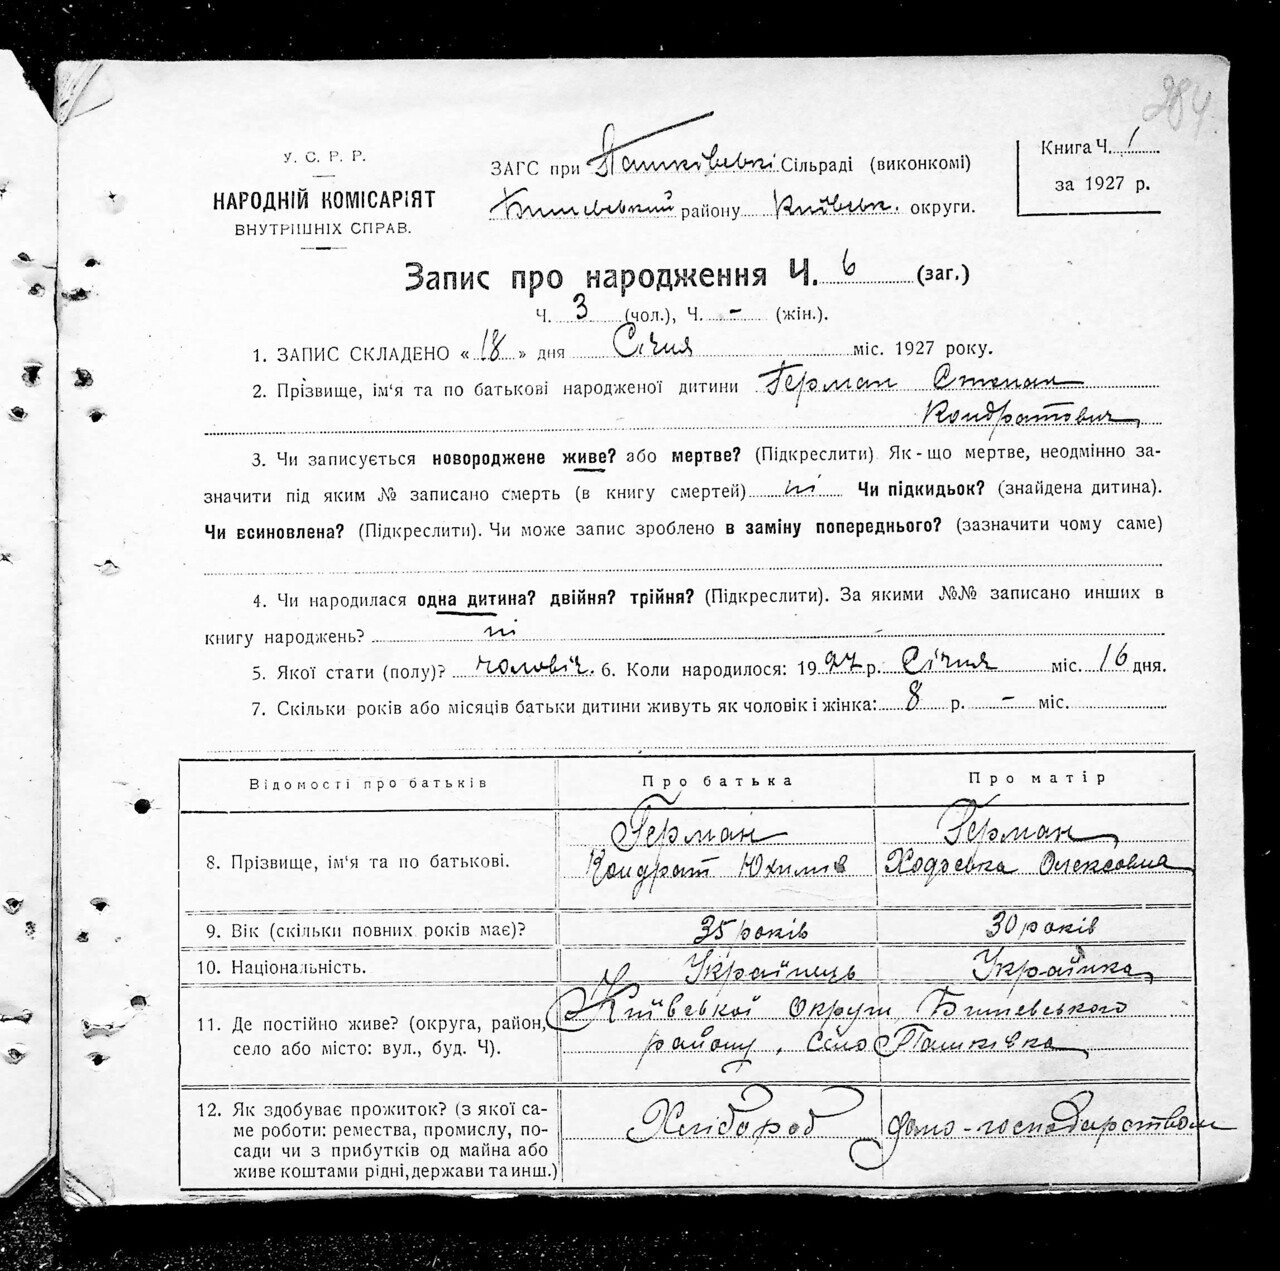 284
У. С. Р. Р.
НАРОДНІЙ КОМІСАРІЯТ
ВНУТРІШНІХ СПРАВ.
ЗАГС при Пашківські Сільраді (виконкомі)
Бишівський району Київськ. округи.
Книга Ч. 1
за 1927 р.
Запис про народження Ч. 6 (заг.)
Ч. 3 (чол.), Ч. - (жін.).
1. ЗАПИС СКЛАДЕНО « 18 » дня Січня міс. 1927 року.
2. Прізвище, ім'я та по батькові народженої дитини Герман Степан
Кондратович
3. Чи записується новороджене живе? або мертве? (Підкреслити) Як-що мертве, неодмінно за-
значити під яким № записано смерть (в книгу смертей) ні Чи підкидьок? (знайдена дитина).
Чи всиновлена? (Підкреслити). Чи може запис зроблено в заміну попереднього? (зазначити чому саме)
4. Чи народилася одна дитина? двійня? трійня? (Підкреслити). За якими №№ записано инших в
книгу народжень? ні
5. Якої стати (полу)? чоловіч. 6. Коли народилося: 1927 р. Січня міс. 16 дня.
7. Скільки років або місяців батьки дитини живуть як чоловік і жінка: 8 р. - міс.
Відомості про батьків Про батька Про матір
8. Прізвище, ім'я та по батькові. Герман Герман
Кондрат Юхимів Ходоська Олексовна
9. Вік (скільки повних років має)? 35 років 30 років
10. Національність. Українець Українка
11. Де постійно живе? (округа, район, Київської Округи, Бишевського
село або місто: вул., буд. Ч). району, село Пашківка
12. Як здобуває прожиток? (з якої са- Хлібороб домо-господарством
ме роботи: ремества, промислу, по-
сади чи з прибутків од майна або
живе коштами рідні, держави та инш.)